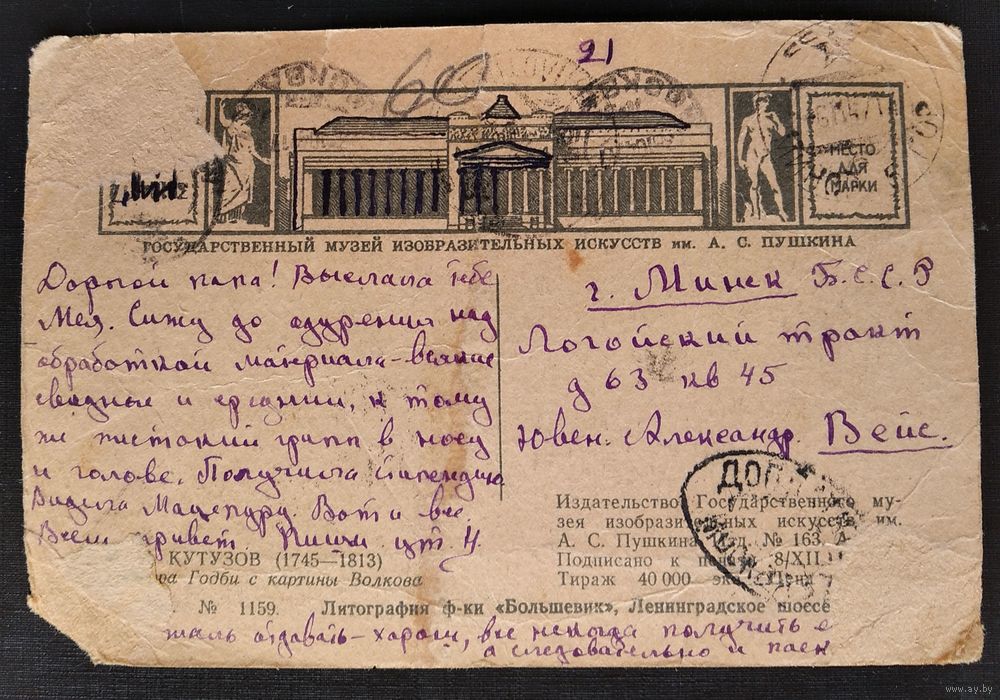 60
21
МЕСТО
ДЛЯ
МАРКИ
ГОСУДАРСТВЕННЫЙ МУЗЕЙ ИЗОБРАЗИТЕЛЬНЫХ ИСКУССТВ им. А. С. ПУШКИНА
Дорогой папа! Выслала тебе
Мея. Сижу до одурения над
обработкой материала - всякие
сводные и средний, к тому
же жестокий грипп в носу
и голове. Получила стипендию
Видела Мацепуру. Вот и все
Всем привет. Пиши.
г. Минск Б.С.С.Р
Логойский тракт
д 63 кв 45
Ювен. Александр. Вейс.
ДОПЛ
Издательство Государственного му-
зея изобразительных искусств им.
А. С. Пушкина. № 163.
Подписано к 8/XII
Тираж 40 000 экз.
КУТУЗОВ (1745—1813)
Годби с картины Волкова
№ 1159. Литография ф-ки «Большевик», Ленинградское шоссе
жаль отдавать - хорош, все некогда получить
а следовательно и паек
www.ay.by